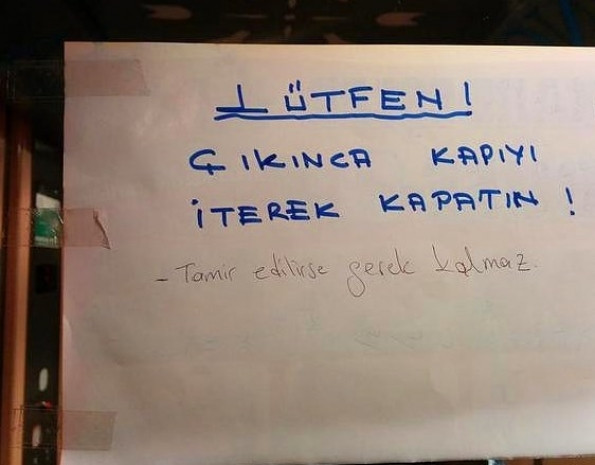 LÜTFEN!
ÇIKINCA KAPIYI
İTEREK KAPATIN !
- Tamir edilirse gerek kalmaz.